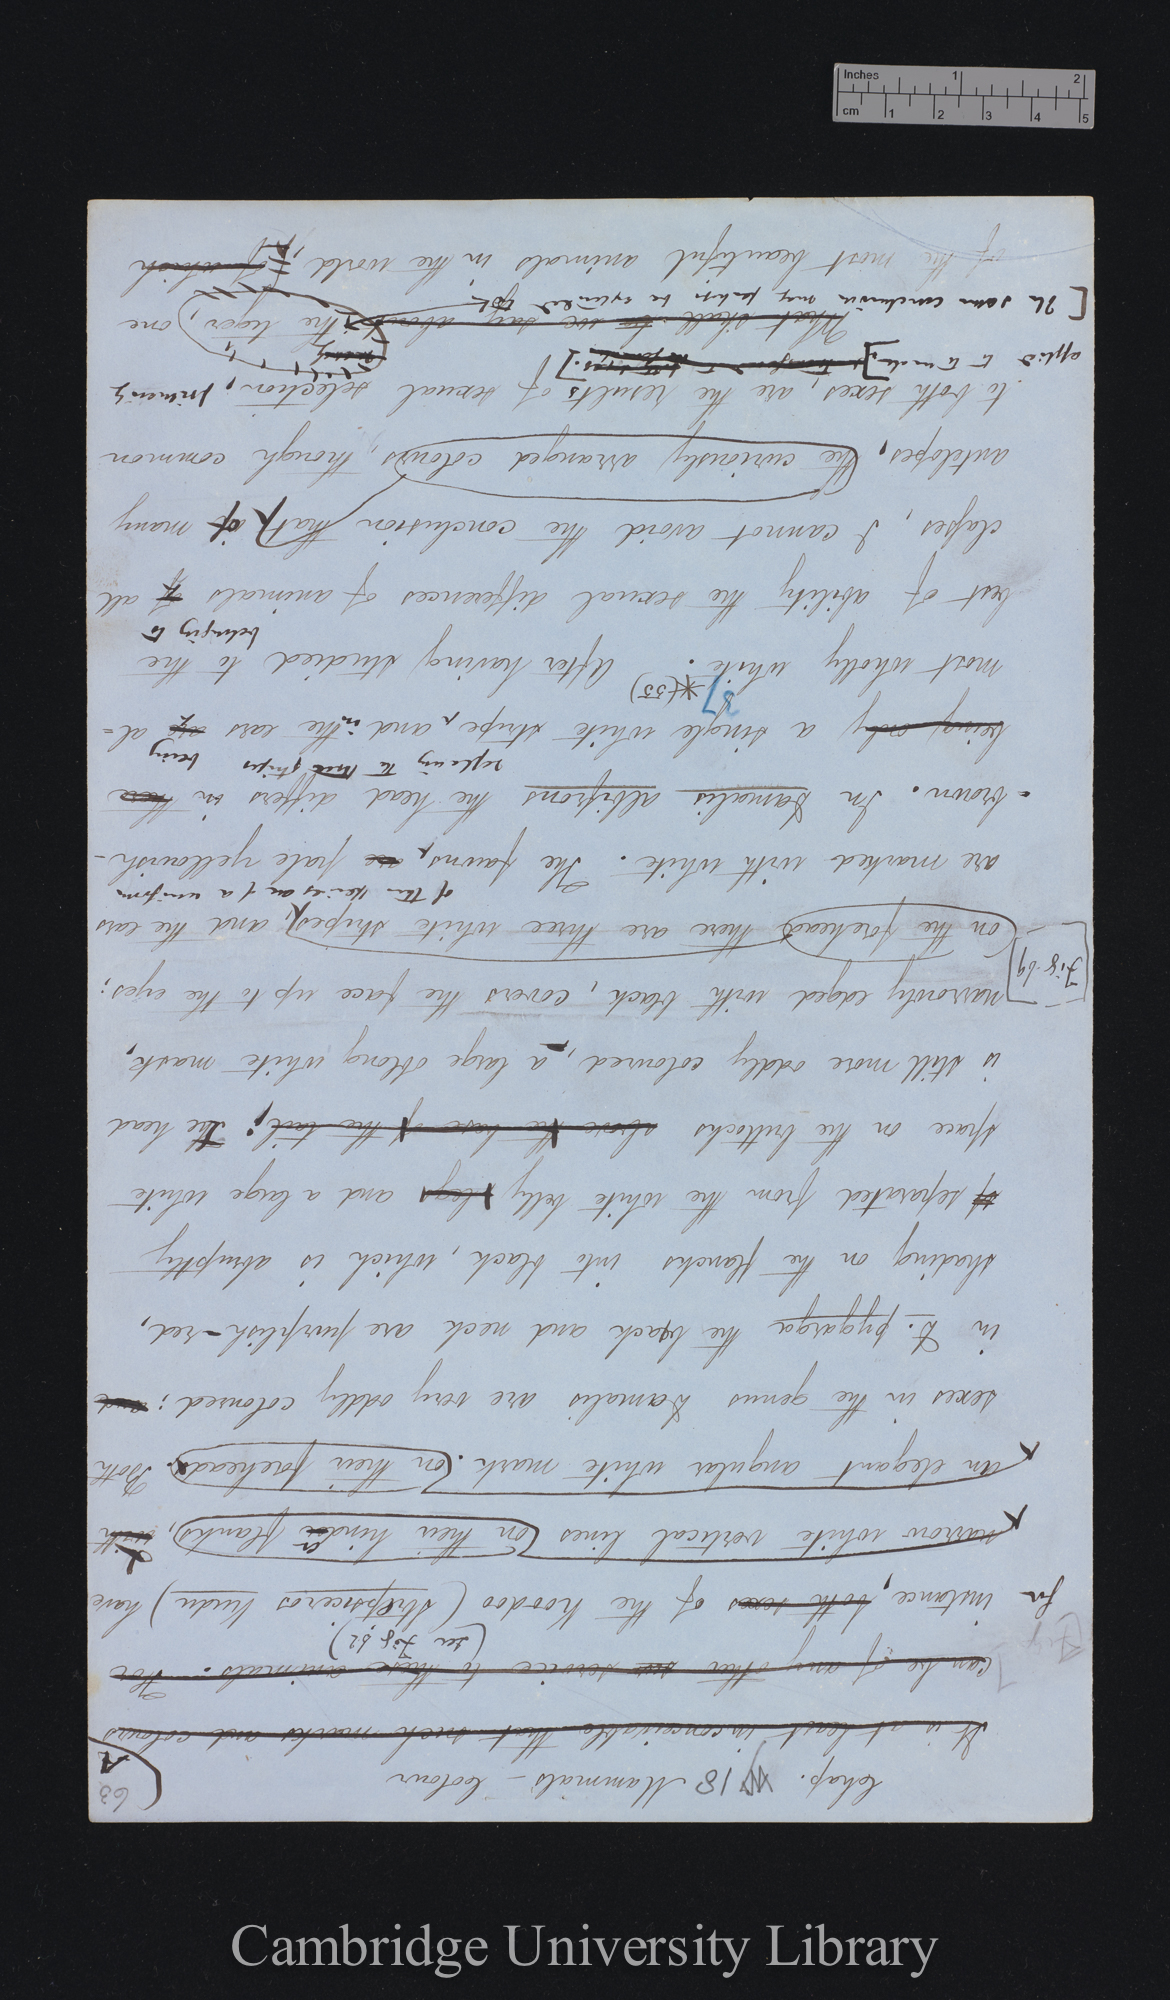 Inches 1 2
cm 1 2 3 4 5
63
A
Chap. 18 Mammals – Colour
It is at least inconceivable that such marks and colours
can be of any other service to these animals. For
(see Fig. 62)
for instance, both sexes of the koodoo (Strepsiceros kudu) have
narrow white vertical lines (on their hinder flanks), with
an elegant angular white mark (on their foreheads. Both
sexes in the genus Damalis are very oddly coloured; and
in D. pygarga the back and neck are purplish-red,
shading on the flancks into black, which is abruptly
separated from the white belly & legs and a large white
space on the buttocks above the base of the tail; The head
is still more oddly coloured, a large oblong white mask,
narrowly edged with black, covers the face up to the eyes;
Fig. 69
(on the forehead) there are three white stripes, and the ears
of this species are of a uniform
are marked with white. The fawns are pale yellowish-
-brown. In Damalis albifrons the head differs in there
replacing the three stripes being
being only a single white stripe, and in the ears al-
37 *(35)
most wholly white. After having studied to the
belonging to
best of ability the sexual differences of animals of all
classes, I cannot avoid the conclusion that of many
antelopes, the curiously arranged colours, though common
to both sexes, are the results of sexual selection, primarily
applied to the male.]
[The same conclusion may perhaps be extended to
What shall we say about the tiger, one
of the most beautiful animals in the world, of which
Cambridge University Library